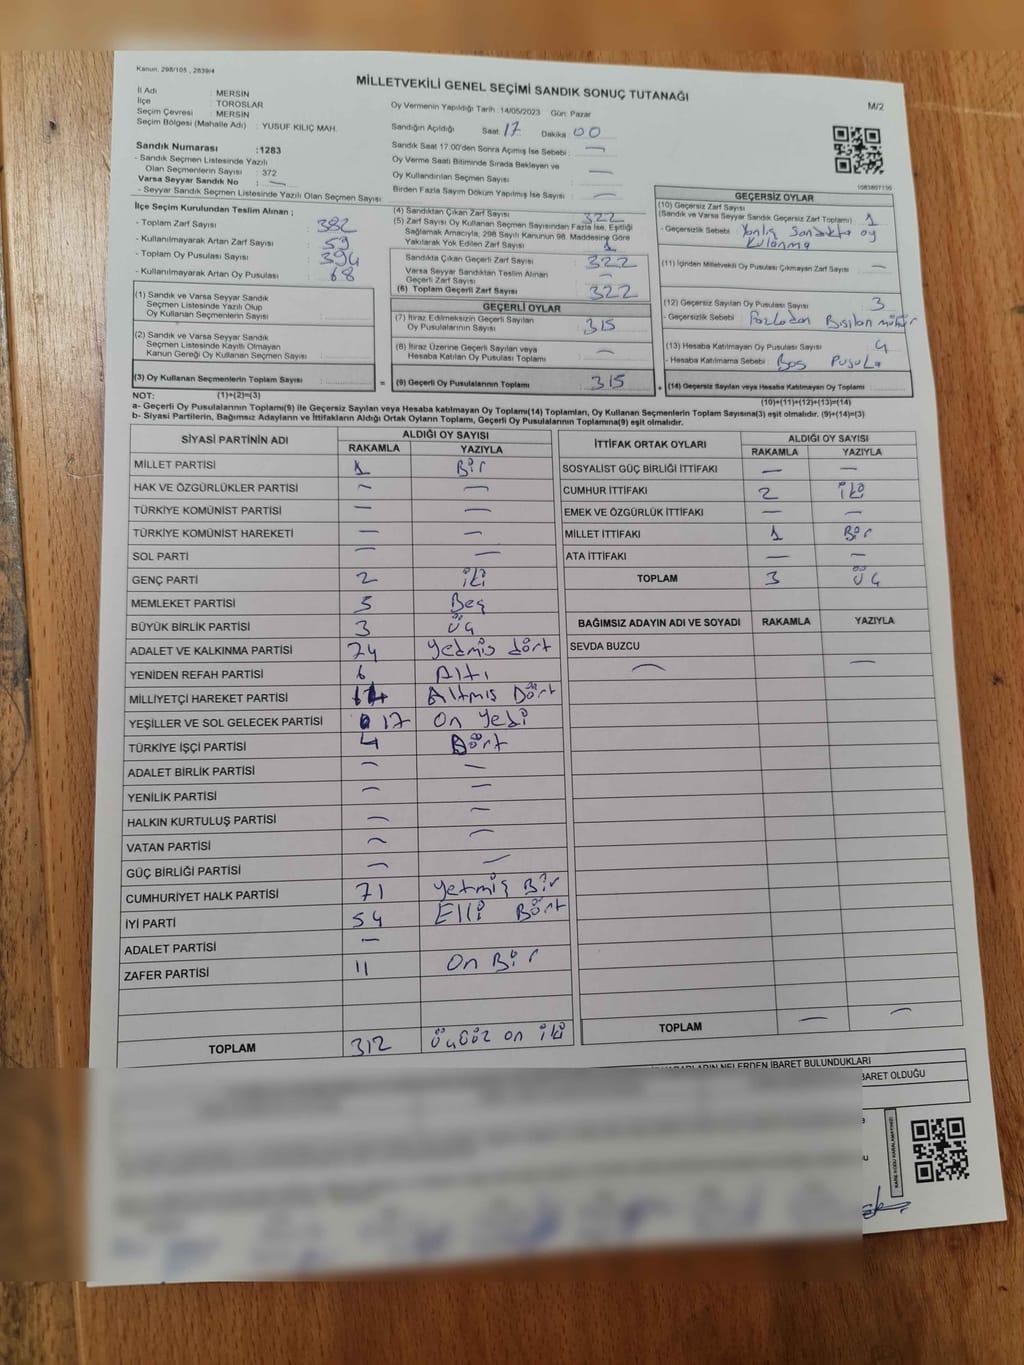 Kanun: 298/105 , 2839/4
MİLLETVEKİLİ GENEL SEÇİMİ SANDIK SONUÇ TUTANAĞI
M/2
İl Adı : MERSİN
İlçe : TOROSLAR
Seçim Çevresi : MERSİN
Seçim Bölgesi (Mahalle Adı) : YUSUF KILIÇ MAH.
Sandık Numarası :1283
- Sandık Seçmen Listesinde Yazılı
Olan Seçmenlerin Sayısı : 372
Varsa Seyyar Sandık No : —
- Seyyar Sandık Seçmen Listesinde Yazılı Olan Seçmen Sayısı:
Oy Vermenin Yapıldığı Tarih :14/05/2023 Gün: Pazar
Sandığın Açıldığı Saat: 17 Dakika: 00
Sandık Saat 17:00'den Sonra Açımış İse Sebebi : —
Oy Verme Saati Bitiminde Sırada Bekleyen ve
Oy Kullandırılan Seçmen Sayısı : —
Birden Fazla Sayım Döküm Yapılmış İse Sayısı : —
İlçe Seçim Kurulundan Teslim Alınan ;
- Toplam Zarf Sayısı : 382
- Kullanılmayarak Artan Zarf Sayısı : 59
- Toplam Oy Pusulası Sayısı : 394
- Kullanılmayarak Artan Oy Pusulası : 68
(1) Sandık ve Varsa Seyyar Sandık
Seçmen Listesinde Yazılı Olup
Oy Kullanan Seçmenlerin Sayısı :
(2) Sandık ve Varsa Seyyar Sandık
Seçmen Listesinde Kayıtlı Olmayan
Kanun Gereği Oy Kullanan Seçmen Sayısı :
(3) Oy Kullanan Seçmenlerin Toplam Sayısı :
(4) Sandıktan Çıkan Zarf Sayısı : 322
(5) Zarf Sayısı Oy Kullanan Seçmen Sayısından Fazla İse, Eşitliği
Sağlamak Amacıyla, 298 Sayılı Kanunun 98. Maddesine Göre
Yakılarak Yok Edilen Zarf Sayısı : 1
Sandıkta Çıkan Geçerli Zarf Sayısı : 322
Varsa Seyyar Sandıktan Teslim Alınan
Geçerli Zarf Sayısı : —
(6) Toplam Geçerli Zarf Sayısı : 322
GEÇERLİ OYLAR
(7) İtiraz Edilmeksizin Geçerli Sayılan
Oy Pusulalarının Sayısı : 315
(8) İtiraz Üzerine Geçerli Sayılan veya
Hesaba Katılan Oy Pusulası Toplamı : —
= (9) Geçerli Oy Pusulalarının Toplamı : 315
1083807135
GEÇERSİZ OYLAR
(10) Geçersiz Zarf Sayısı
(Sandık ve Varsa Seyyar Sandık Geçersiz Zarf Toplamı) : 1
- Geçersizlik Sebebi : Yanlış Sandıkta oy
kulanma
(11) İçinden Milletvekili Oy Pusulası Çıkmayan Zarf Sayısı : —
(12) Geçersiz Sayılan Oy Pusulası Sayısı : 3
- Geçersizlik Sebebi : Fazladan Bısılan mühür
(13) Hesaba Katılmayan Oy Pusulası Sayısı : 4
- Hesaba Katılmama Sebebi : Boş Pusula
+ (14) Geçersiz Sayılan veya Hesaba Katılmayan Oy Toplamı :
NOT: (1)+(2)=(3) (10)+(11)+(12)+(13)=(14)
a- Geçerli Oy Pusulalarının Toplamı(9) ile Geçersiz Sayılan veya Hesaba katılmayan Oy Toplamı(14) Toplamları, Oy Kullanan Seçmenlerin Toplam Sayısına(3) eşit olmalıdır. (9)+(14)=(3)
b- Siyasi Partilerin, Bağımsız Adayların ve İttifakların Aldığı Ortak Oyların Toplamı, Geçerli Oy Pusulalarının Toplamına(9) eşit olmalıdır.
SİYASİ PARTİNİN ADI ALDIĞI OY SAYISI
RAKAMLA YAZIYLA
MİLLET PARTİSİ 1 Bir
HAK VE ÖZGÜRLÜKLER PARTİSİ — —
TÜRKİYE KOMÜNİST PARTİSİ — —
TÜRKİYE KOMÜNİST HAREKETİ — —
SOL PARTİ — —
GENÇ PARTİ 2 iki
MEMLEKET PARTİSİ 5 Beş
BÜYÜK BİRLİK PARTİSİ 3 üç
ADALET VE KALKINMA PARTİSİ 74 yetmiş dört
YENİDEN REFAH PARTİSİ 6 Altı
MİLLİYETÇİ HAREKET PARTİSİ 64 Altmış Dört
YEŞİLLER VE SOL GELECEK PARTİSİ 17 On Yedi
TÜRKİYE İŞÇİ PARTİSİ 4 Dört
ADALET BİRLİK PARTİSİ — —
YENİLİK PARTİSİ — —
HALKIN KURTULUŞ PARTİSİ — —
VATAN PARTİSİ — —
GÜÇ BİRLİĞİ PARTİSİ — —
CUMHURİYET HALK PARTİSİ 71 yetmiş Bir
İYİ PARTİ 54 Elli Dört
ADALET PARTİSİ —
ZAFER PARTİSİ 11 On Bir
TOPLAM 312 üçyüz on iki
İTTİFAK ORTAK OYLARI ALDIĞI OY SAYISI
RAKAMLA YAZIYLA
SOSYALİST GÜÇ BİRLİĞİ İTTİFAKI — —
CUMHUR İTTİFAKI 2 iki
EMEK VE ÖZGÜRLÜK İTTİFAKI — —
MİLLET İTTİFAKI 1 Bir
ATA İTTİFAKI — —
TOPLAM 3 üç
BAĞIMSIZ ADAYIN ADI VE SOYADI RAKAMLA YAZIYLA
SEVDA BUZCU
— —
TOPLAM — —
NELERDEN İBARET BULUNDUKLARI
BARET OLDUĞU
KARE KODU KARALAMAYINIZ!